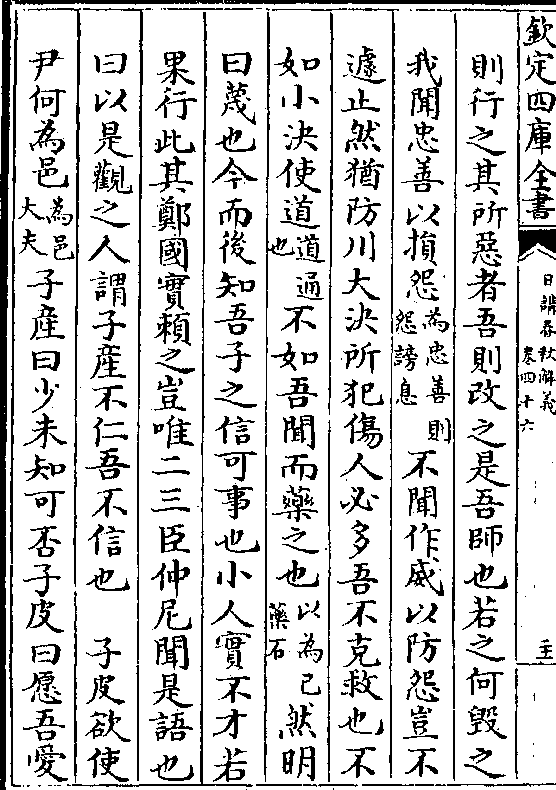 欽定四庫全書
日講春秋解義
卷四十六
則行之其所惡者吾則改之是吾師也若之何毀之
我聞忠善以損怨為忠善則怨謗息不聞作威以防怨豈不
遽止然猶防川大決所犯傷人必多吾不克救也不
如小決使道道通也不如吾聞而藥之也以為己藥石然明
曰蔑也今而後知吾子之信可事也小人實不才若
果行此其鄭國實賴之豈唯二三臣仲尼聞是語也
曰以是觀之人謂子產不仁吾不信也　子皮欲使
尹何為邑為邑大夫子產曰少未知可否子皮曰愿吾愛